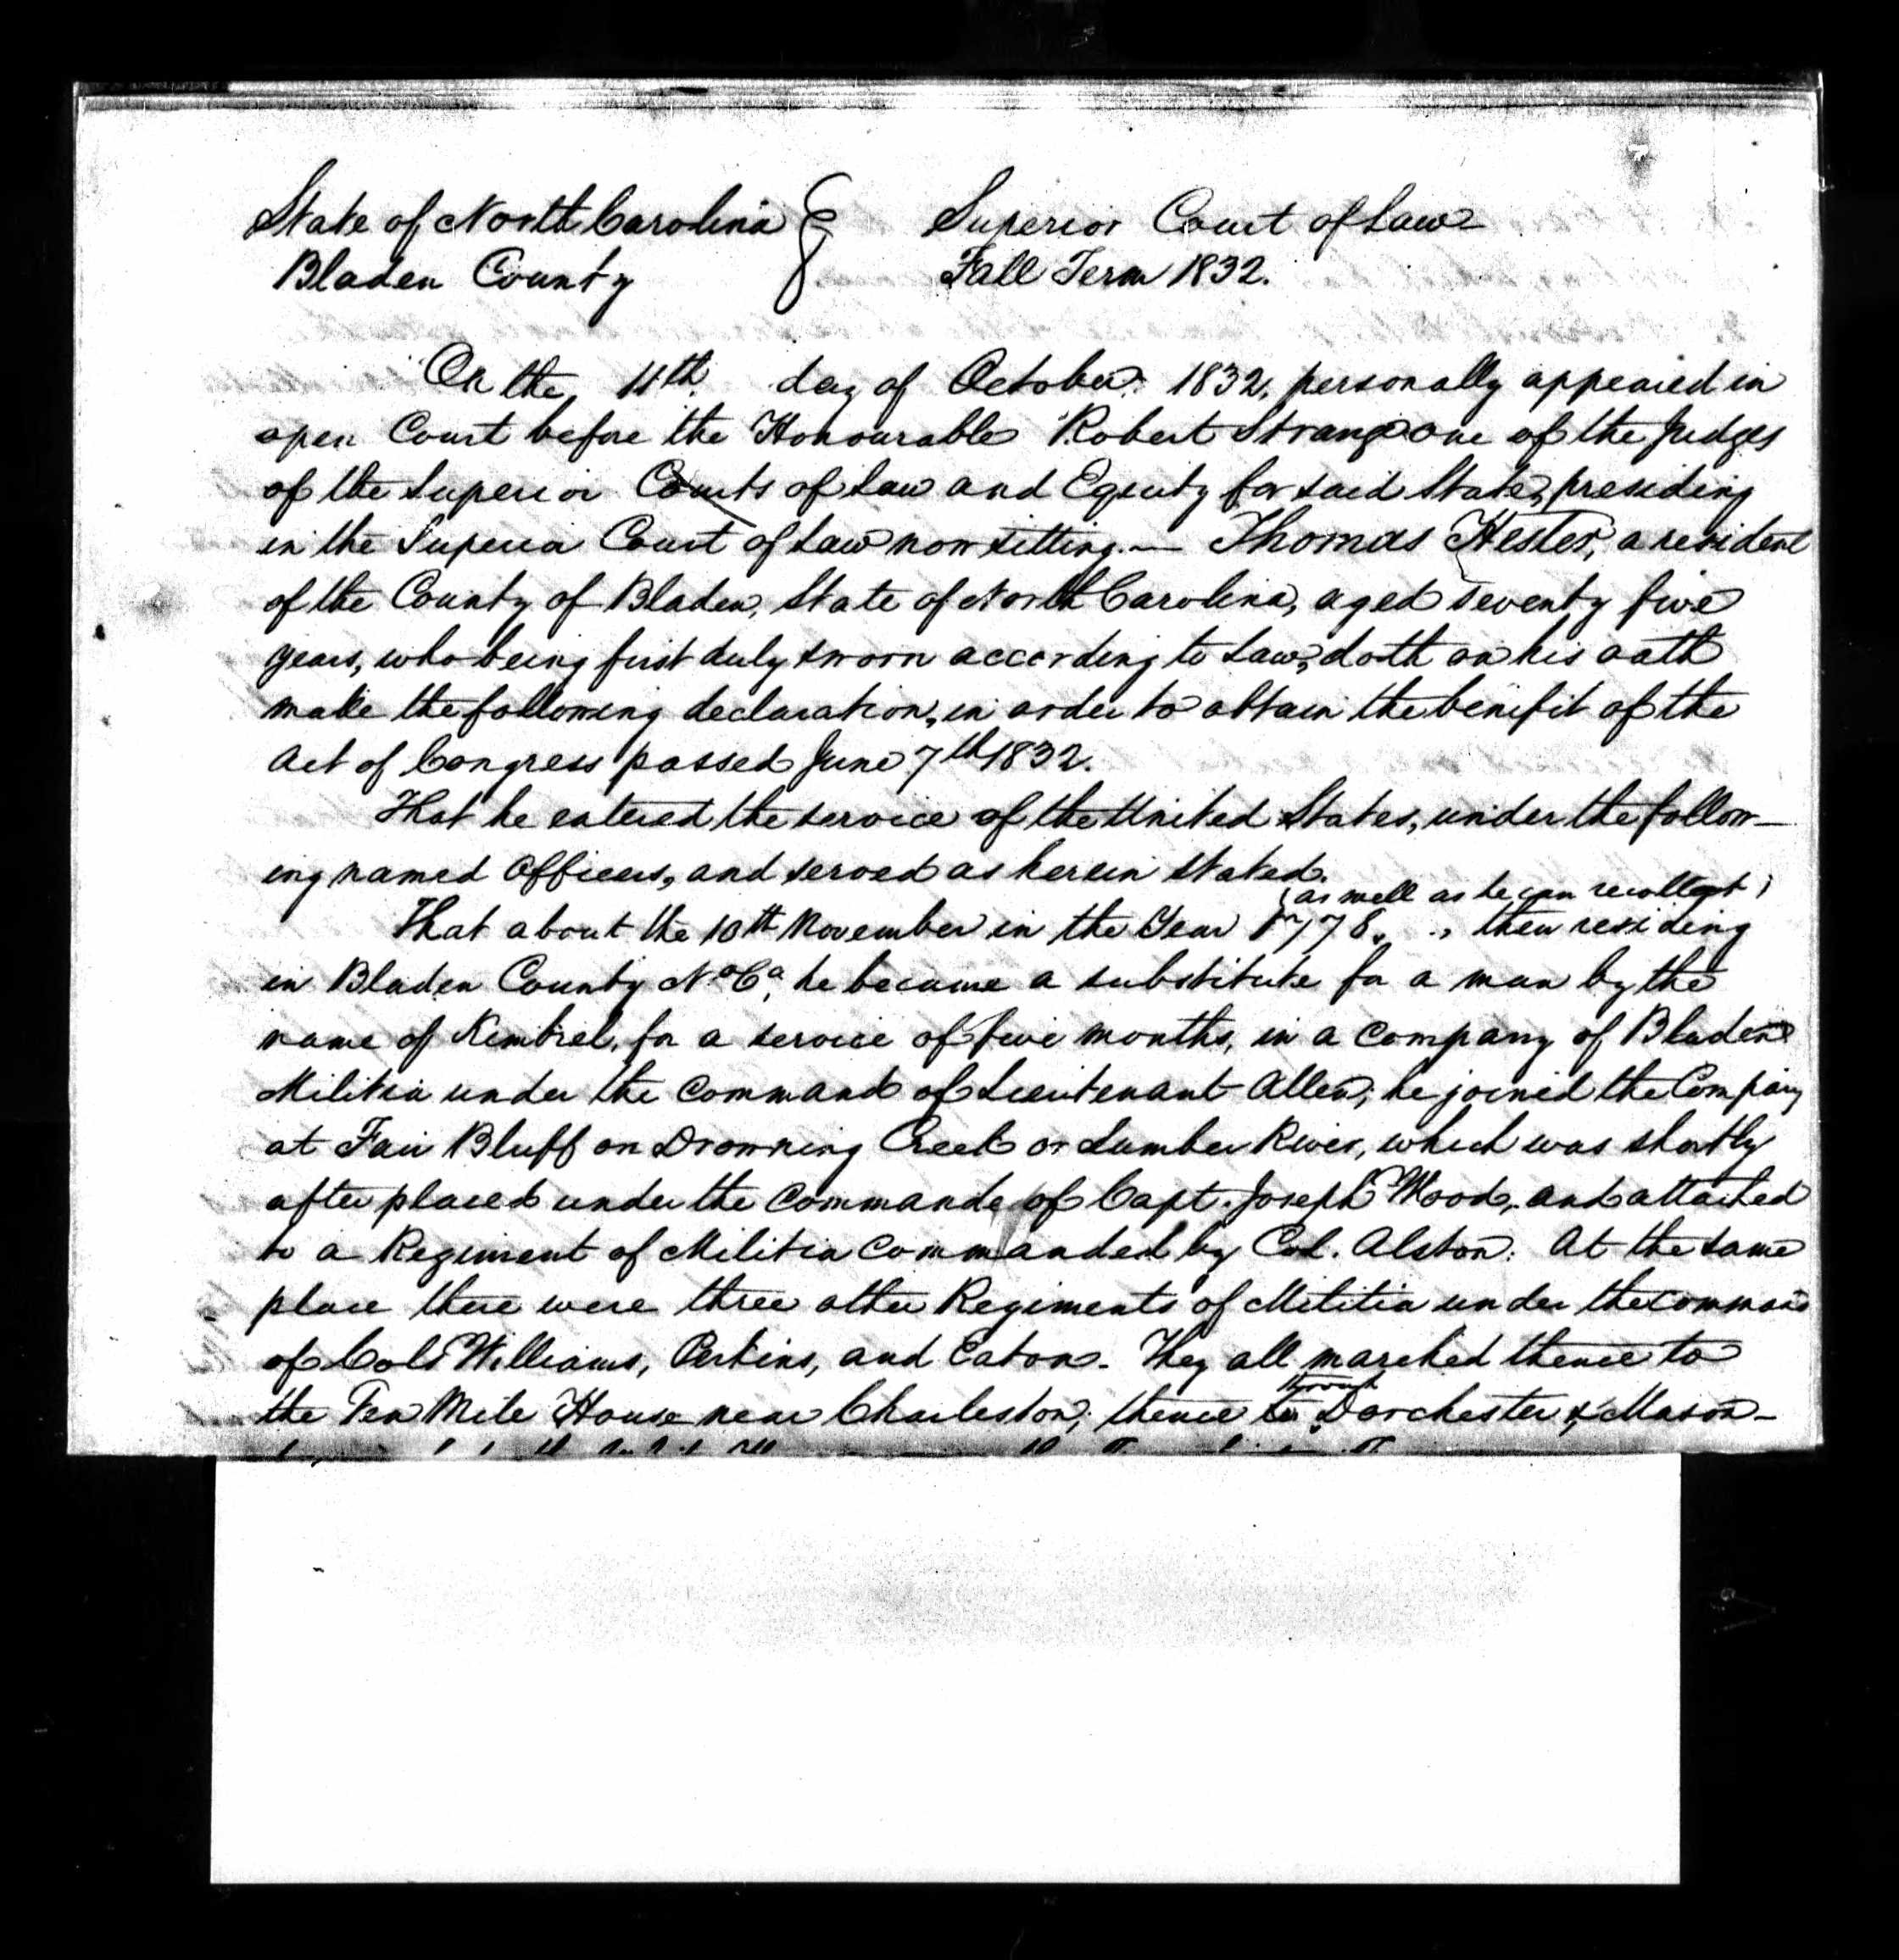 State of North Carolina } Superior Court of Law
Bladen County } Fall Term 1832.
On the 11th. day of October. 1832, personally appeared in
open Court before the Honourable Robert Strange one of the Judges
of the Superior Courts of Law and Equity for said State, presiding
in the Superior Court of Law now sitting. — Thomas Hester, a resident
of the County of Bladen, State of North Carolina, aged seventy five
years, who being first duly sworn according to Law, doth on his oath
make the following declaration, in order to obtain the benifit of the
Act of Congress passed June 7th 1832.
That he entered the service of the United States, under the follow—
ing named Officers, and served as herein stated.
(as well as he can recollect)
That about the 10th November in the Year 1778, then residing
in Bladen County No. Ca, he became a substitute for a man by the
name of Kimbrel, for a service of five months, in a Company of Bladen
Militia under the Command of Lieutenant Allen; he joined the Company
at Fair Bluff on Drowning Creek or Lumber River, which was shortly
after placed under the Command of Capt. Joseph Wood, and attached
to a Regiment of Militia Commanded by Col. Alston. At the same
place there were three other Regiments of Militia under the command
of Cols Williams, Perkins, and Eaton. They all marched thence to
through
the Ten Mile House near Charleston; thence to Dorchester & Mason-